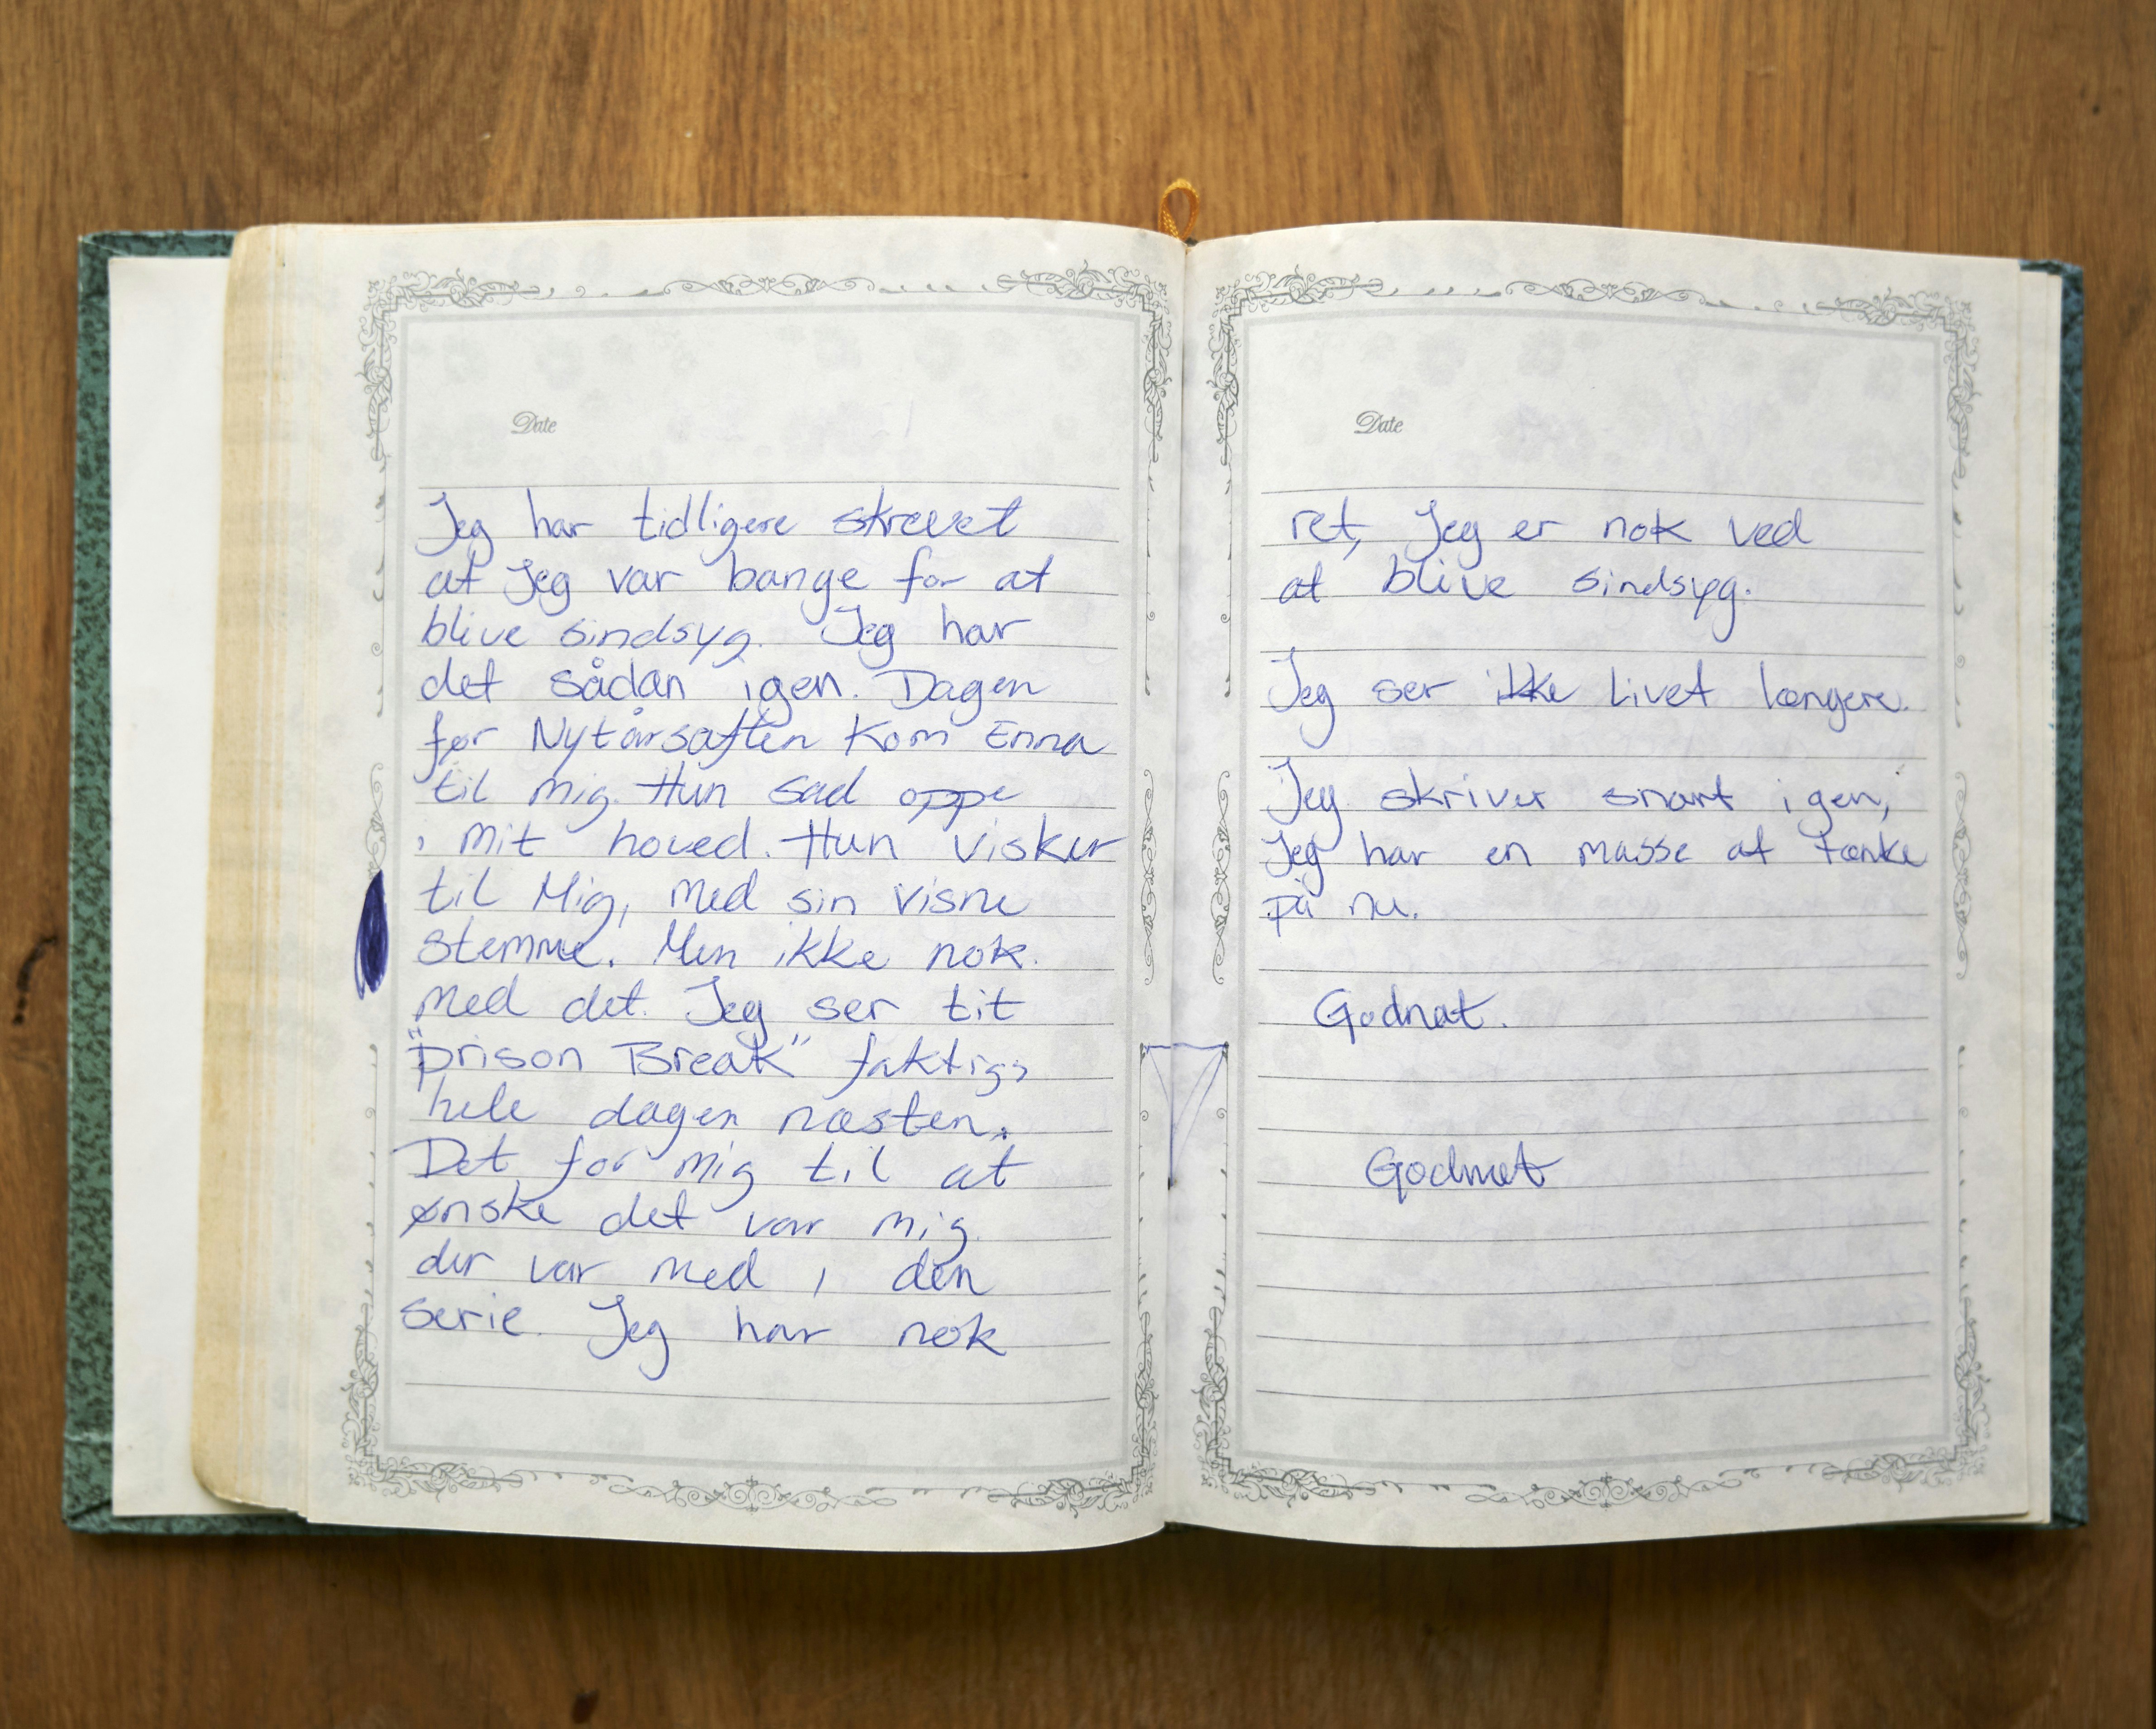 Date
Jeg har tidligere skrevet
at Jeg var bange for at
blive sindsyg. Jeg har
det sådan igen. Dagen
før Nytårsaften kom Enna
til mig. Hun sad oppe
i mit hoved. Hun visker
til Mig, med sin visne
stemme. Men ikke nok
med det. Jeg ser tit
"prison Break" faktigs
hele dagen næsten.
Det for mig til at
ønske det var mig
der var med i den
serie. Jeg har nok
Date
ret, Jeg er nok ved
at blive sindsyg.
Jeg ser ikke Livet længere.
Jeg skriver snart igen,
Jeg har en masse at tænke
på nu.
Godnat.
Godnat